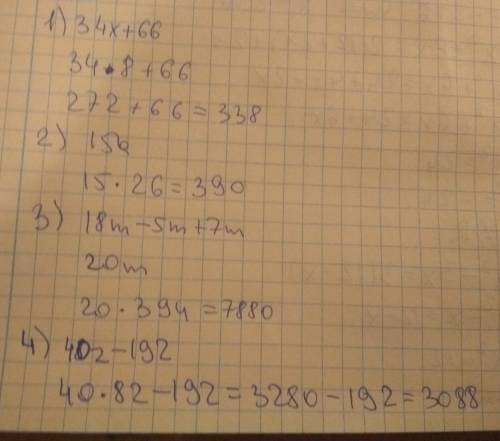 1) 34x+66
34·8+66
272+66=338
2) 15a
15·26=390
3) 18m-5m+7m
20m
20·394=7880
4) 40z-192
40·82-192=3280-192=3088